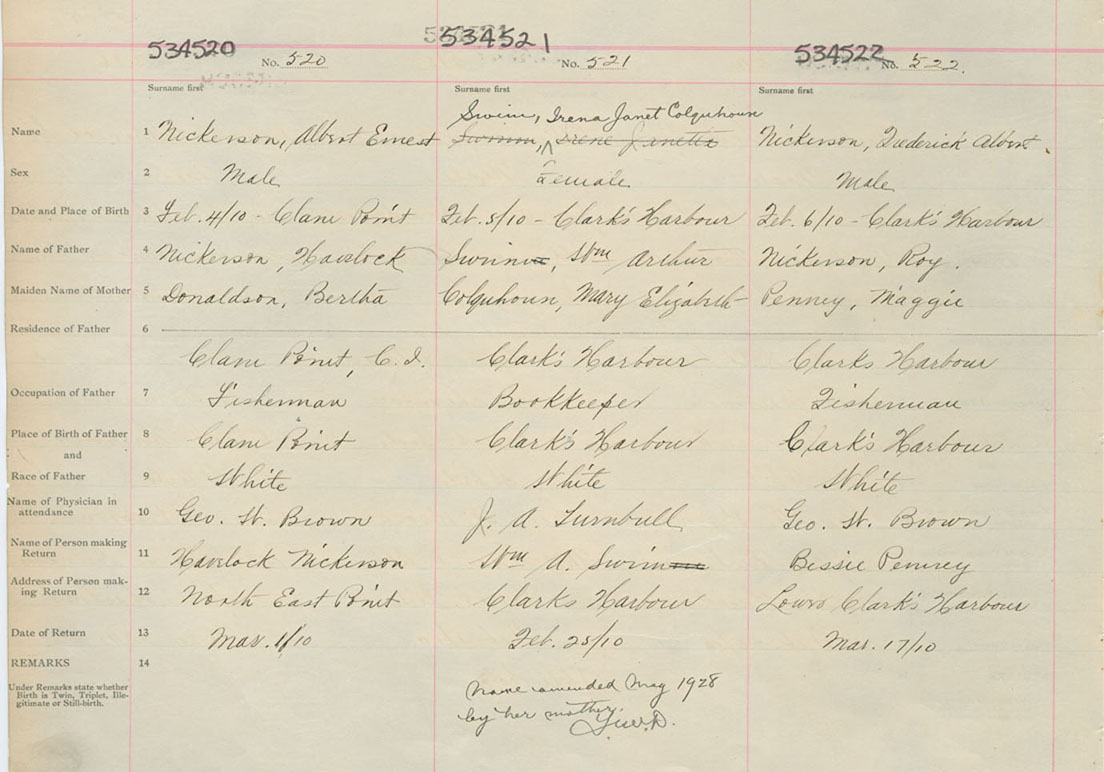 534520 534521 534522
No. 520 No. 521 No. 522.
Surname first Surname first Surname first
Swim, Irena Janet Colquhoun
Name 1 Nickerson, Albert Ernest Swimm, Irene Janetta Nickerson, Frederick Albert.
Sex 2 Male Female Male
Date and Place of Birth 3 Feb. 4/10 - Clam Point Feb. 5/10 - Clark's Harbour Feb. 6/10 - Clark's Harbour
Name of Father 4 Nickerson, Havelock Swimm, Wm Arthur Nickerson, Roy.
Maiden Name of Mother 5 Donaldson, Bertha Colquhoun, Mary Elizabeth Penney, Maggie
Residence of Father 6
Clam Point, C.I. Clark's Harbour Clarks Harbour
Occupation of Father 7 Fisherman Bookkeeper Fisherman
Place of Birth of Father 8 Clam Point Clark's Harbour Clark's Harbour
and
Race of Father 9 White White White
Name of Physician in
attendance 10 Geo. W. Brown J. A. Turnbull Geo. W. Brown
Name of Person making
Return 11 Havelock Nickerson Wm A. Swimm Bessie Penney
Address of Person mak-
ing Return 12 North East Point Clarks Harbour Lower Clark's Harbour
Date of Return 13 Mar. 1/10 Feb. 25/10 Mar. 17/10
REMARKS 14
Under Remarks state whether
Birth is Twin, Triplet, Ille-
gitimate or Still-birth.
Name amended May 1928
by her mother.